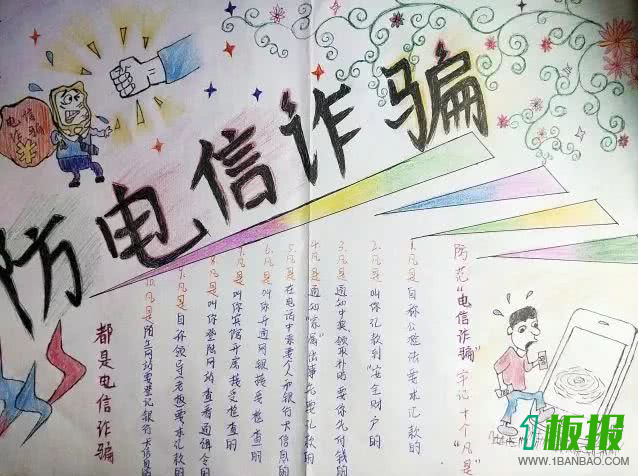 防电信诈骗
电信
诈骗
¥
防范“电信诈骗”牢记十个“凡是”
1.凡是自称公检法要求汇款的
2.凡是叫你汇款到“安全账户”的
3.凡是通知中奖、领取补贴要你先付钱的
4.凡是通知“家属”出事先要汇款的
5.凡是在电话中索要个人和银行卡信息的
6.凡是叫你开通网银接受检查的
7.凡是叫你宾馆开房接受检查的
8.凡是叫你登陆网站查看通缉令的
9.凡是自称领导老板要求汇款的
10.凡是陌生网站要登记银行卡信息
都是电信诈骗
1板报
WWW.1BANBAO.COM